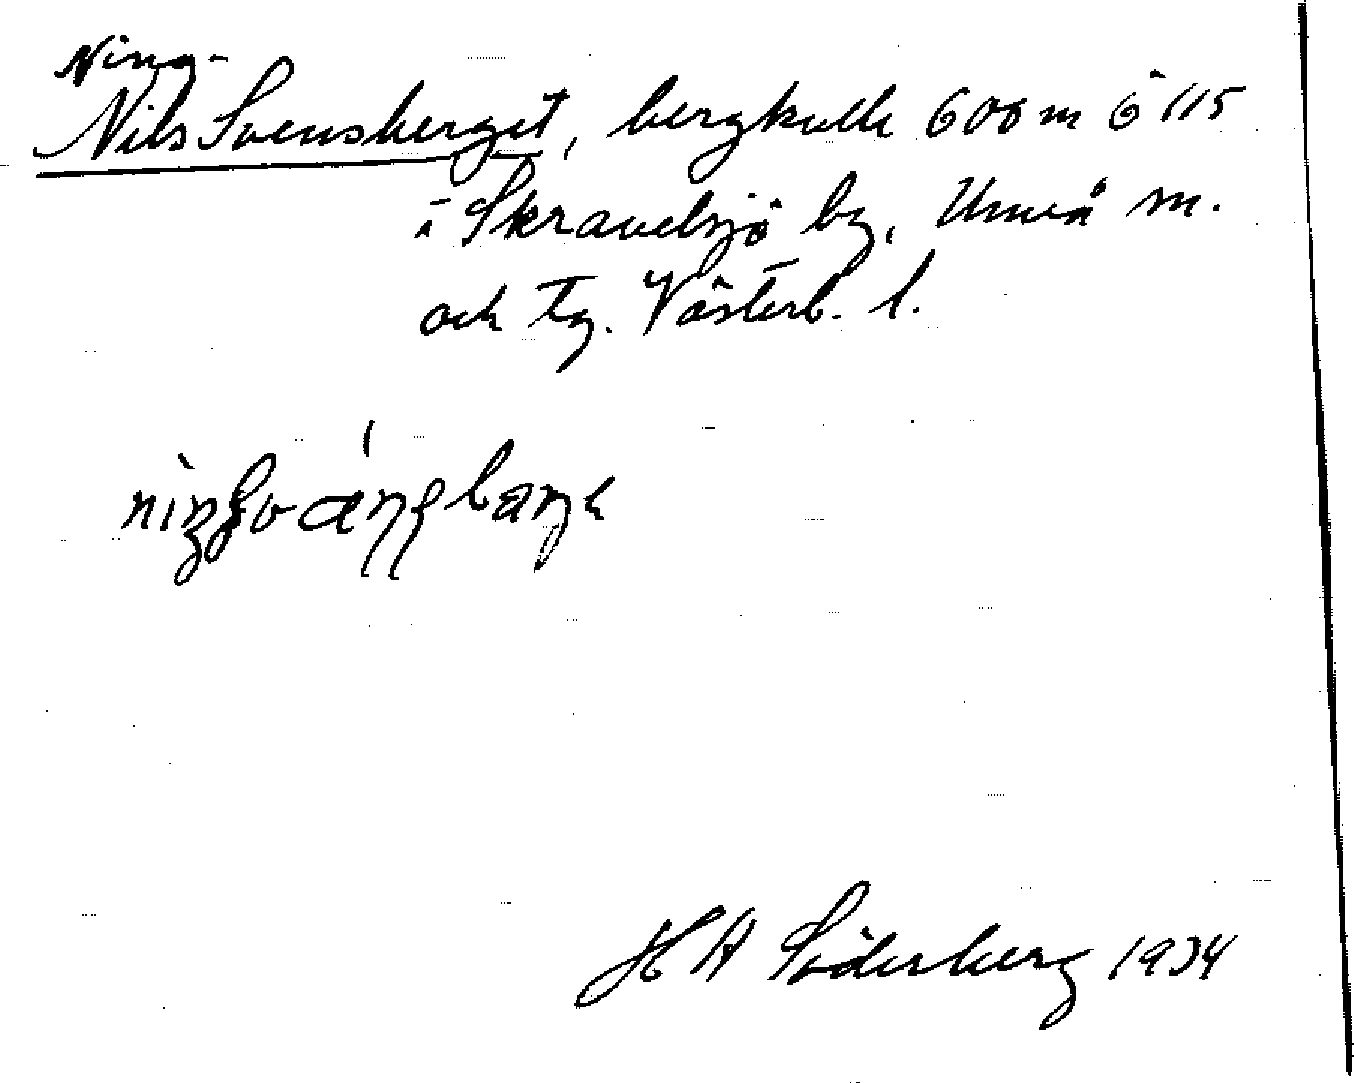 Ning-
Nils Svensberget, bergkulle 600 m ö 115
i Skravelsjö by, Umeå m.
och tg. Västerb. l.
H A Söderberg 1934